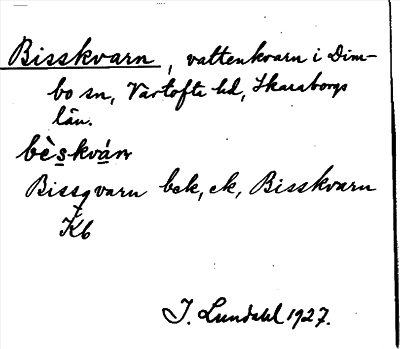 Bisskvarn, vattenkvarn i Dim-
bo sn, Vartofta hd, Skaraborgs
län.
bèskván
Bissqvarn bek, ek, Bisskvarn
Kb
I. Lundahl 1927.